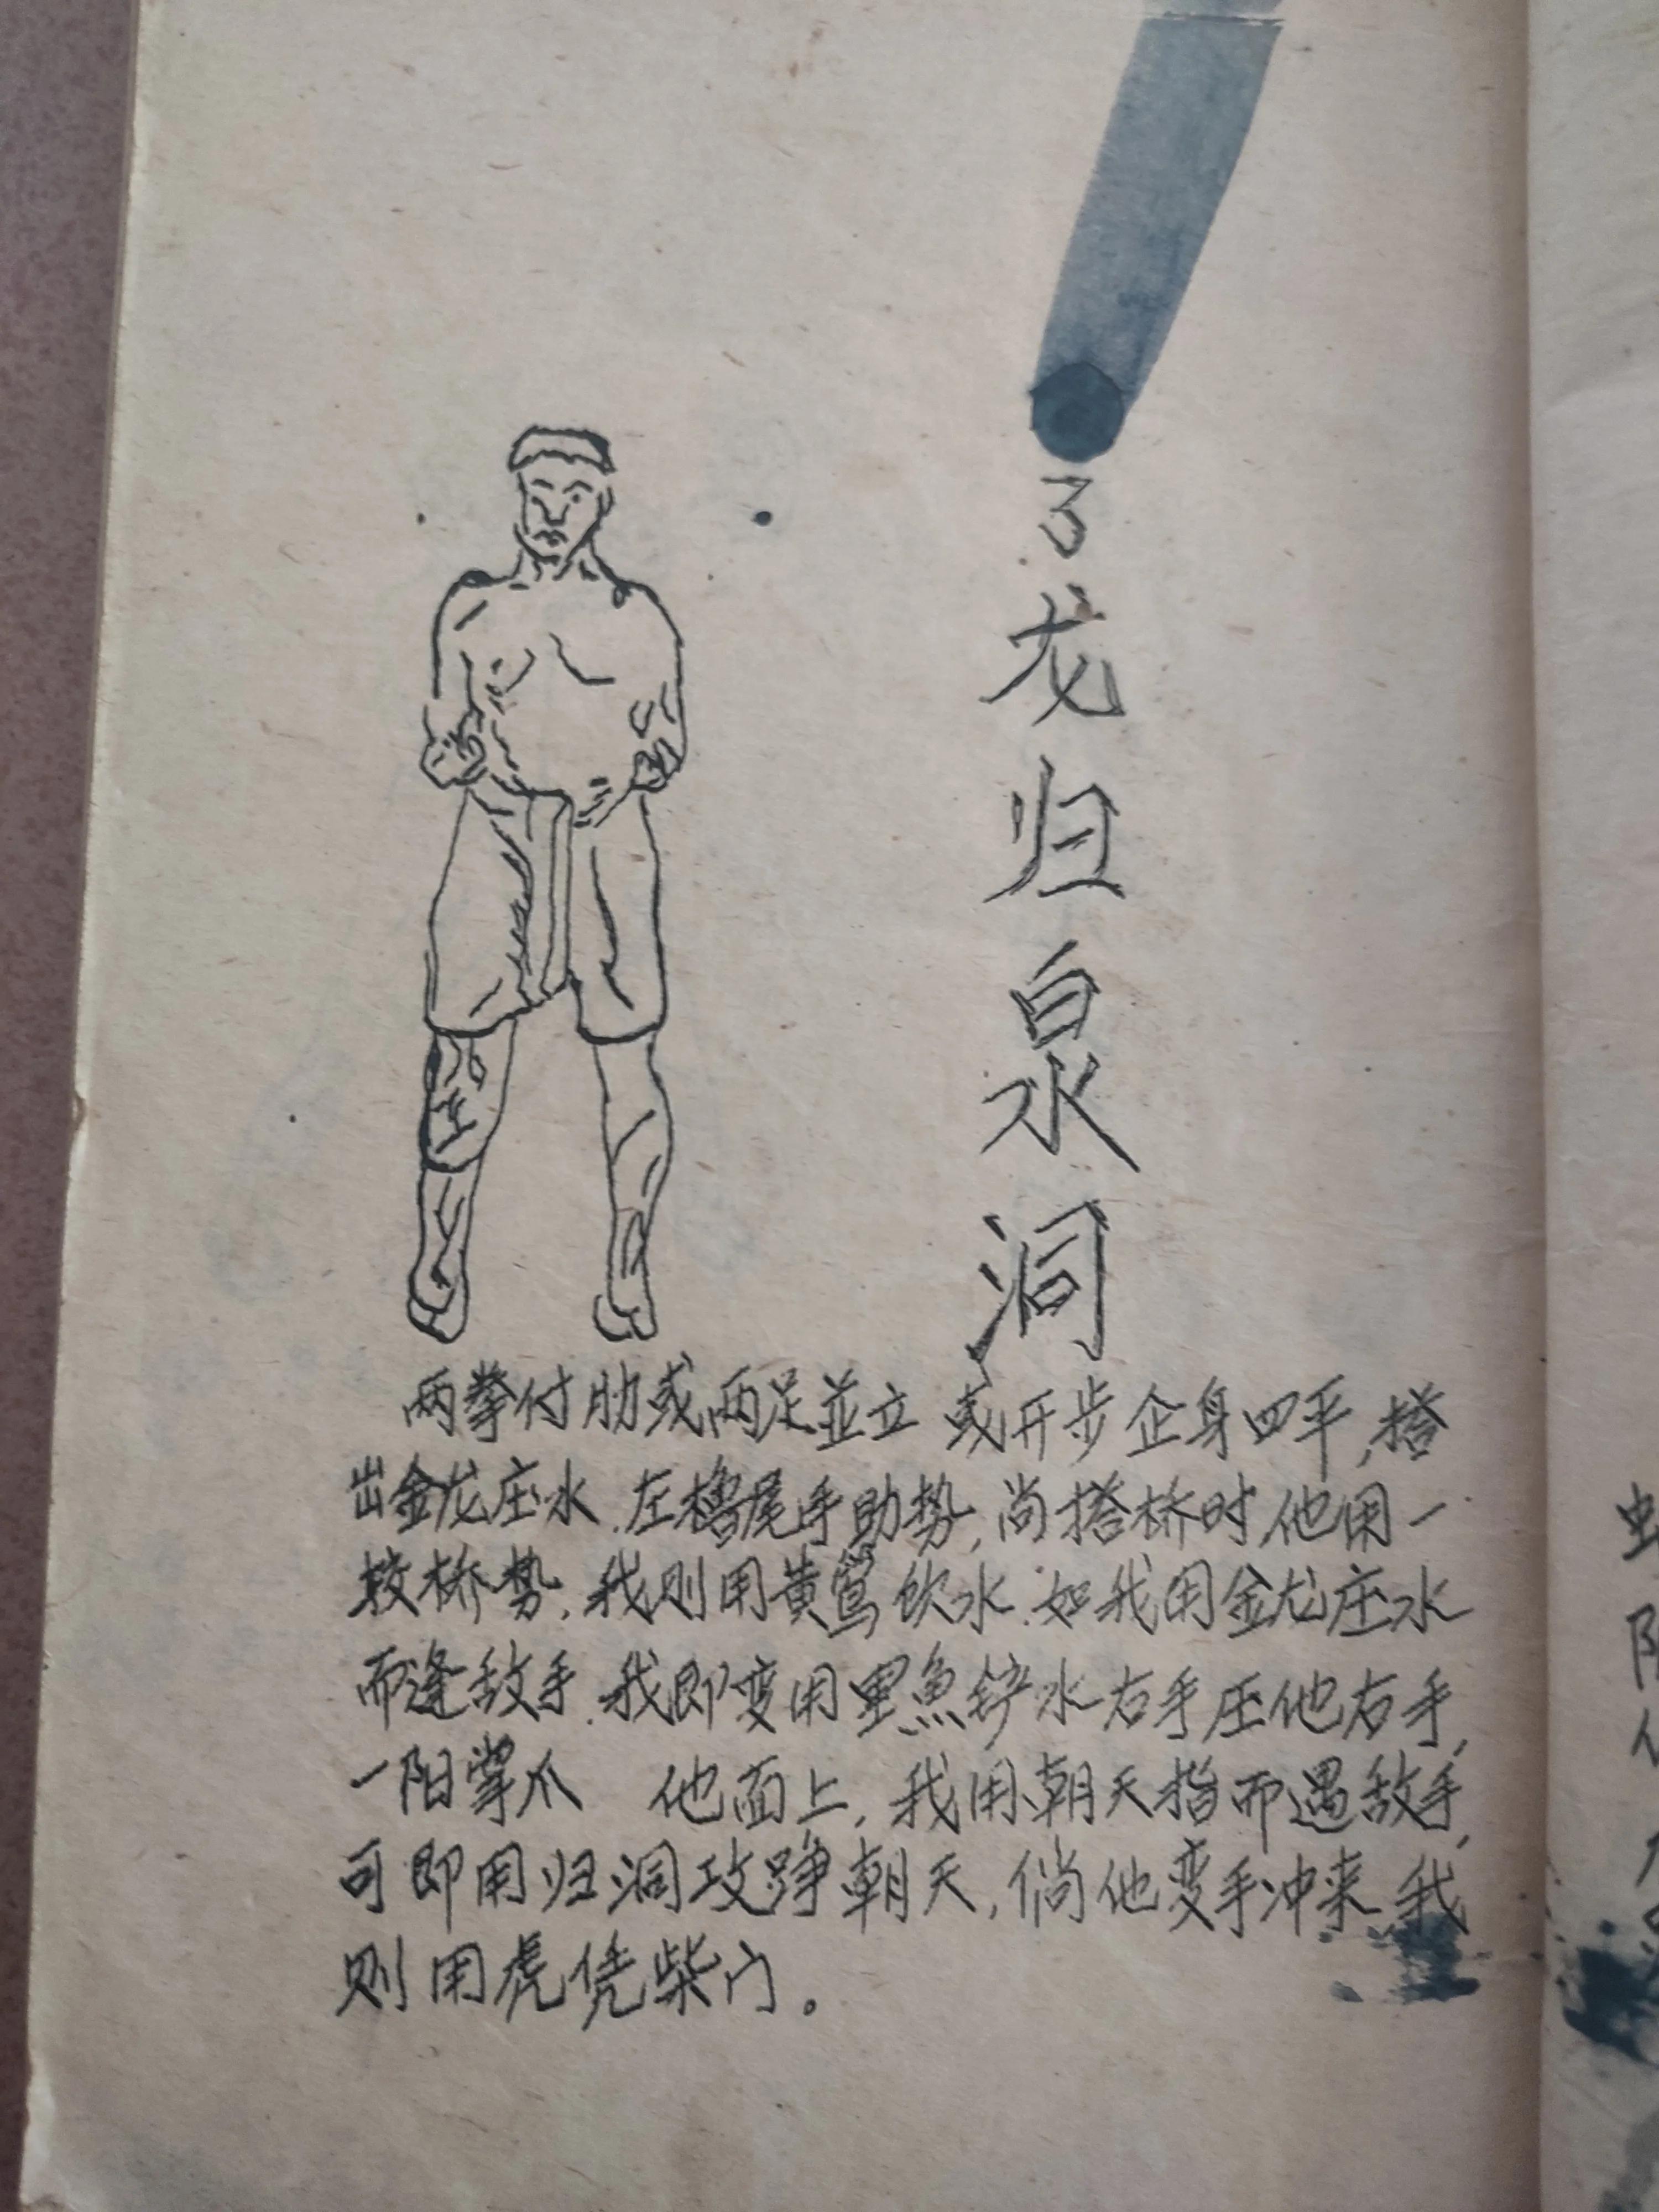 3
龙归泉洞
两拳付肋或两足並立 或开步企身四平,搭
出金龙庄水.左橹尾手助势,尚搭桥时,他用一
较桥势,我则用黄莺饮水.如我用金龙庄水
而逢敌手.我即变用里魚铲水右手压他右手,
一阳掌爪 他面上,我用朝天指而遇敌手,
可即用归洞攻踭朝天,倘他变手冲来.我
则用虎凭柴门。